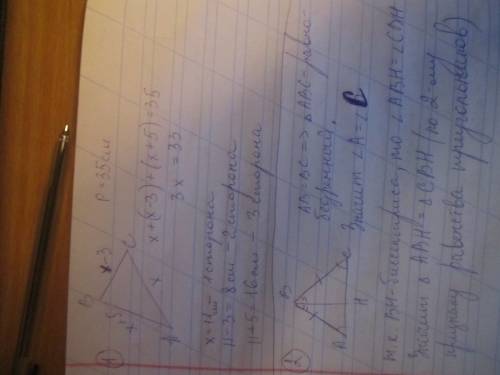 ①
B
x+5
x-3
A
x
C
P = 35 см
x+(x-3)+(x+5)=35
3x = 33
x=11 см - 1 сторона
11-3=8 см - 2 сторона
11+5=16 см - 3 сторона
②
B
A
H
C
AB=BC => △ABC - равно-
бедренный.
Значит ∠A=∠C
т.к BH-биссектриса, то ∠ABH=∠CBH
Значит △ABH=△CBH (по 2-ому
признаку равенства треугольников)